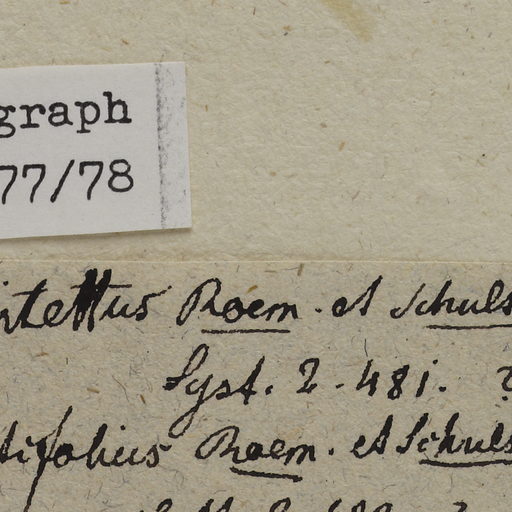 graph
77/78
Roem. et Schuls
Syst. 2. 481. ?
tifolius Roem. et Schuls